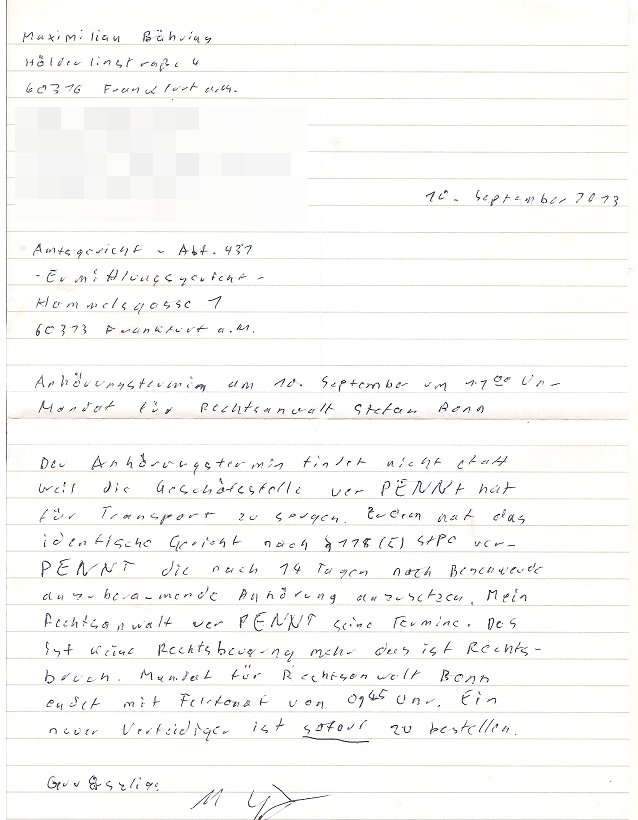 Maximilian Bähring
Hölderlinstraße 4
60316 Frankfurt a.M.
10. September 2013
Amtsgericht - Abt. 431
- Ermittlungsgericht -
Hammelsgasse 1
60313 Frankfurt a.M.
Anhörungstermin am 10. September um 11 00 Uhr
Mandat für Rechtsanwalt Stefan Bonn
Der Anhörungstermin findet nicht statt
weil die Geschäfsstelle ver PENNt hat
für Transport zu sorgen. Zudem hat das
identische Gericht nach § 118 (5) StPO ver-
PENNT die nach 14 Tagen nach Beschwerde
anzuberaumende Anhörung anzusetzen. Mein
Rechtsanwalt ver PENNT seine Termine. Das
ist keine Rechtsbeugung mehr das ist Rechts-
bruch. Mandat für Rechtsanwalt Bonn
endet mit Telefonat von 09 45 Uhr. Ein
neuer Verteidiger ist sofort zu bestellen.